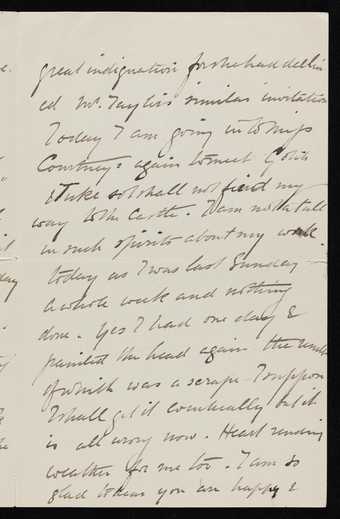 great indignation for she had declin
ed Mr. Taylor's similar invitation
Today I am going in to Miss
Courtney's again to meet
& Tuke so I shall not find my
way to the Castle. I am not at all
in such spirits about my work
today as I was last Sunday —
a whole week and nothing
done. Yes I had one day &
painted the head again the result
of which was a scrape. I suppose
I shall get it eventually but it
is all wrong now. Heart rending
weather for me too. I am so
glad to hear you are happy &